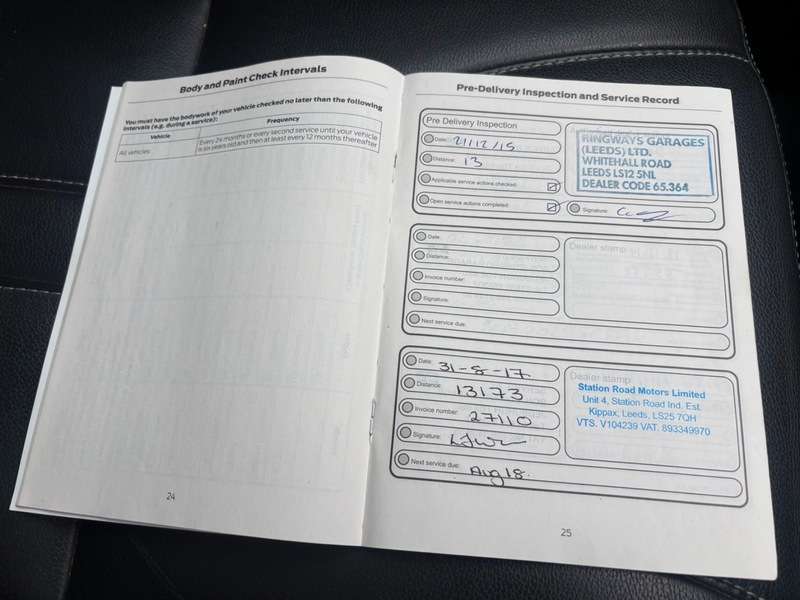 Body and Paint Check Intervals
You must have the bodywork of your vehicle checked no later than the following
intervals (e.g. during a service):
Vehicle
Frequency
All vehicles
Every 24 months or every second service until your vehicle
is six years old and then at least every 12 months thereafter
24
Pre-Delivery Inspection and Service Record
Pre Delivery Inspection
Date: 21/12/15
Distance: 13
Applicable service actions checked:
Open service actions completed:
RINGWAYS GARAGES
(LEEDS) LTD.
WHITEHALL ROAD
LEEDS LS12 5NL
DEALER CODE 65.364
Signature:
Date:
Distance:
Invoice number:
Signature:
Next service due:
Dealer stamp:
Date: 31-8-17
Distance: 13173
Invoice number: 27110
Signature:
Next service due: Aug 18.
Dealer stamp
Station Road Motors Limited
Unit 4, Station Road Ind. Est.
Kippax, Leeds, LS25 7QH
VTS. V104239 VAT. 893349970
25